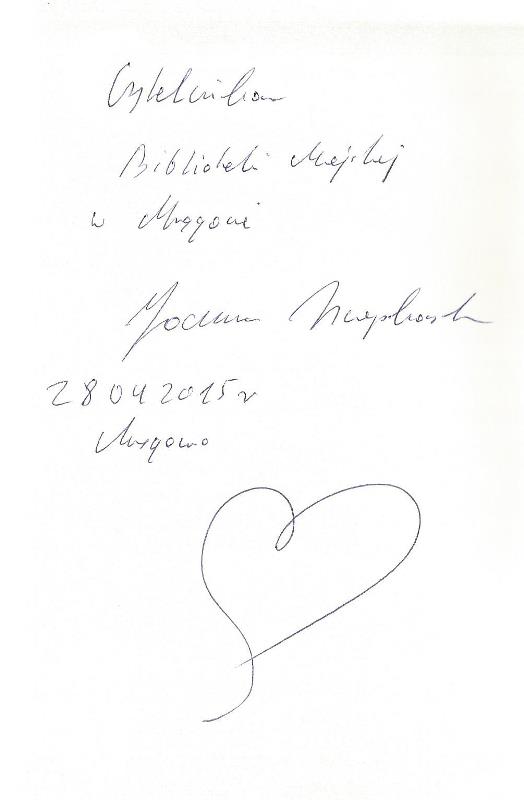 Czytelnikom
Biblioteki Miejskiej
w Mrągowie
Joanna
28 04 2015 r
Mrągowo